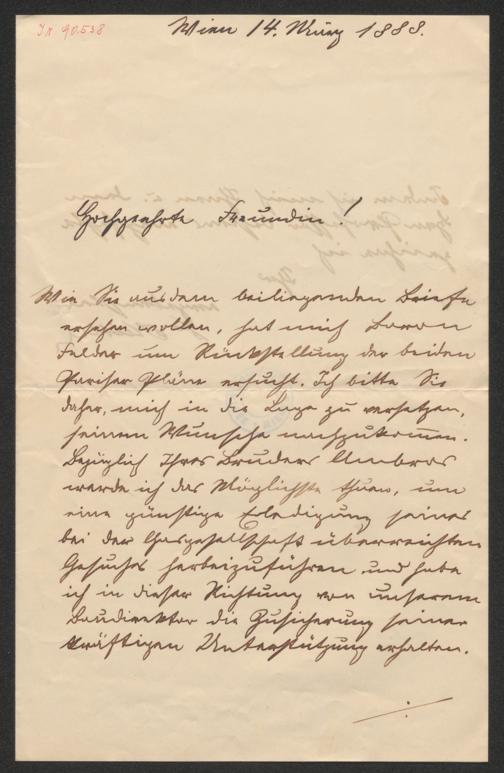 I.N. 90.538
Wien 14. März 1888.
Hochgeehrte Freundin!
Wie Sie aus dem beiliegenden Briefe
ersehen wollen, hat mich Baron
Felder um Rückstellung der beiden
Pariser Pläne ersucht. Ich bitte Sie
daher, mich in die Lage zu versetzen,
seinem Wunsche nachzukom̅en.
Bezüglich Ihres Bruders Ambros
werde ich das Möglichste thuen, um
eine günstige Erledigung seines
bei der Gasgesellschaft überreichten
Gesuches herbeizuführen und habe
ich in dieser Richtung von unserem
Baudirektor die Zusicherung seiner
kräftigen Unterstützung erhalten.
./.